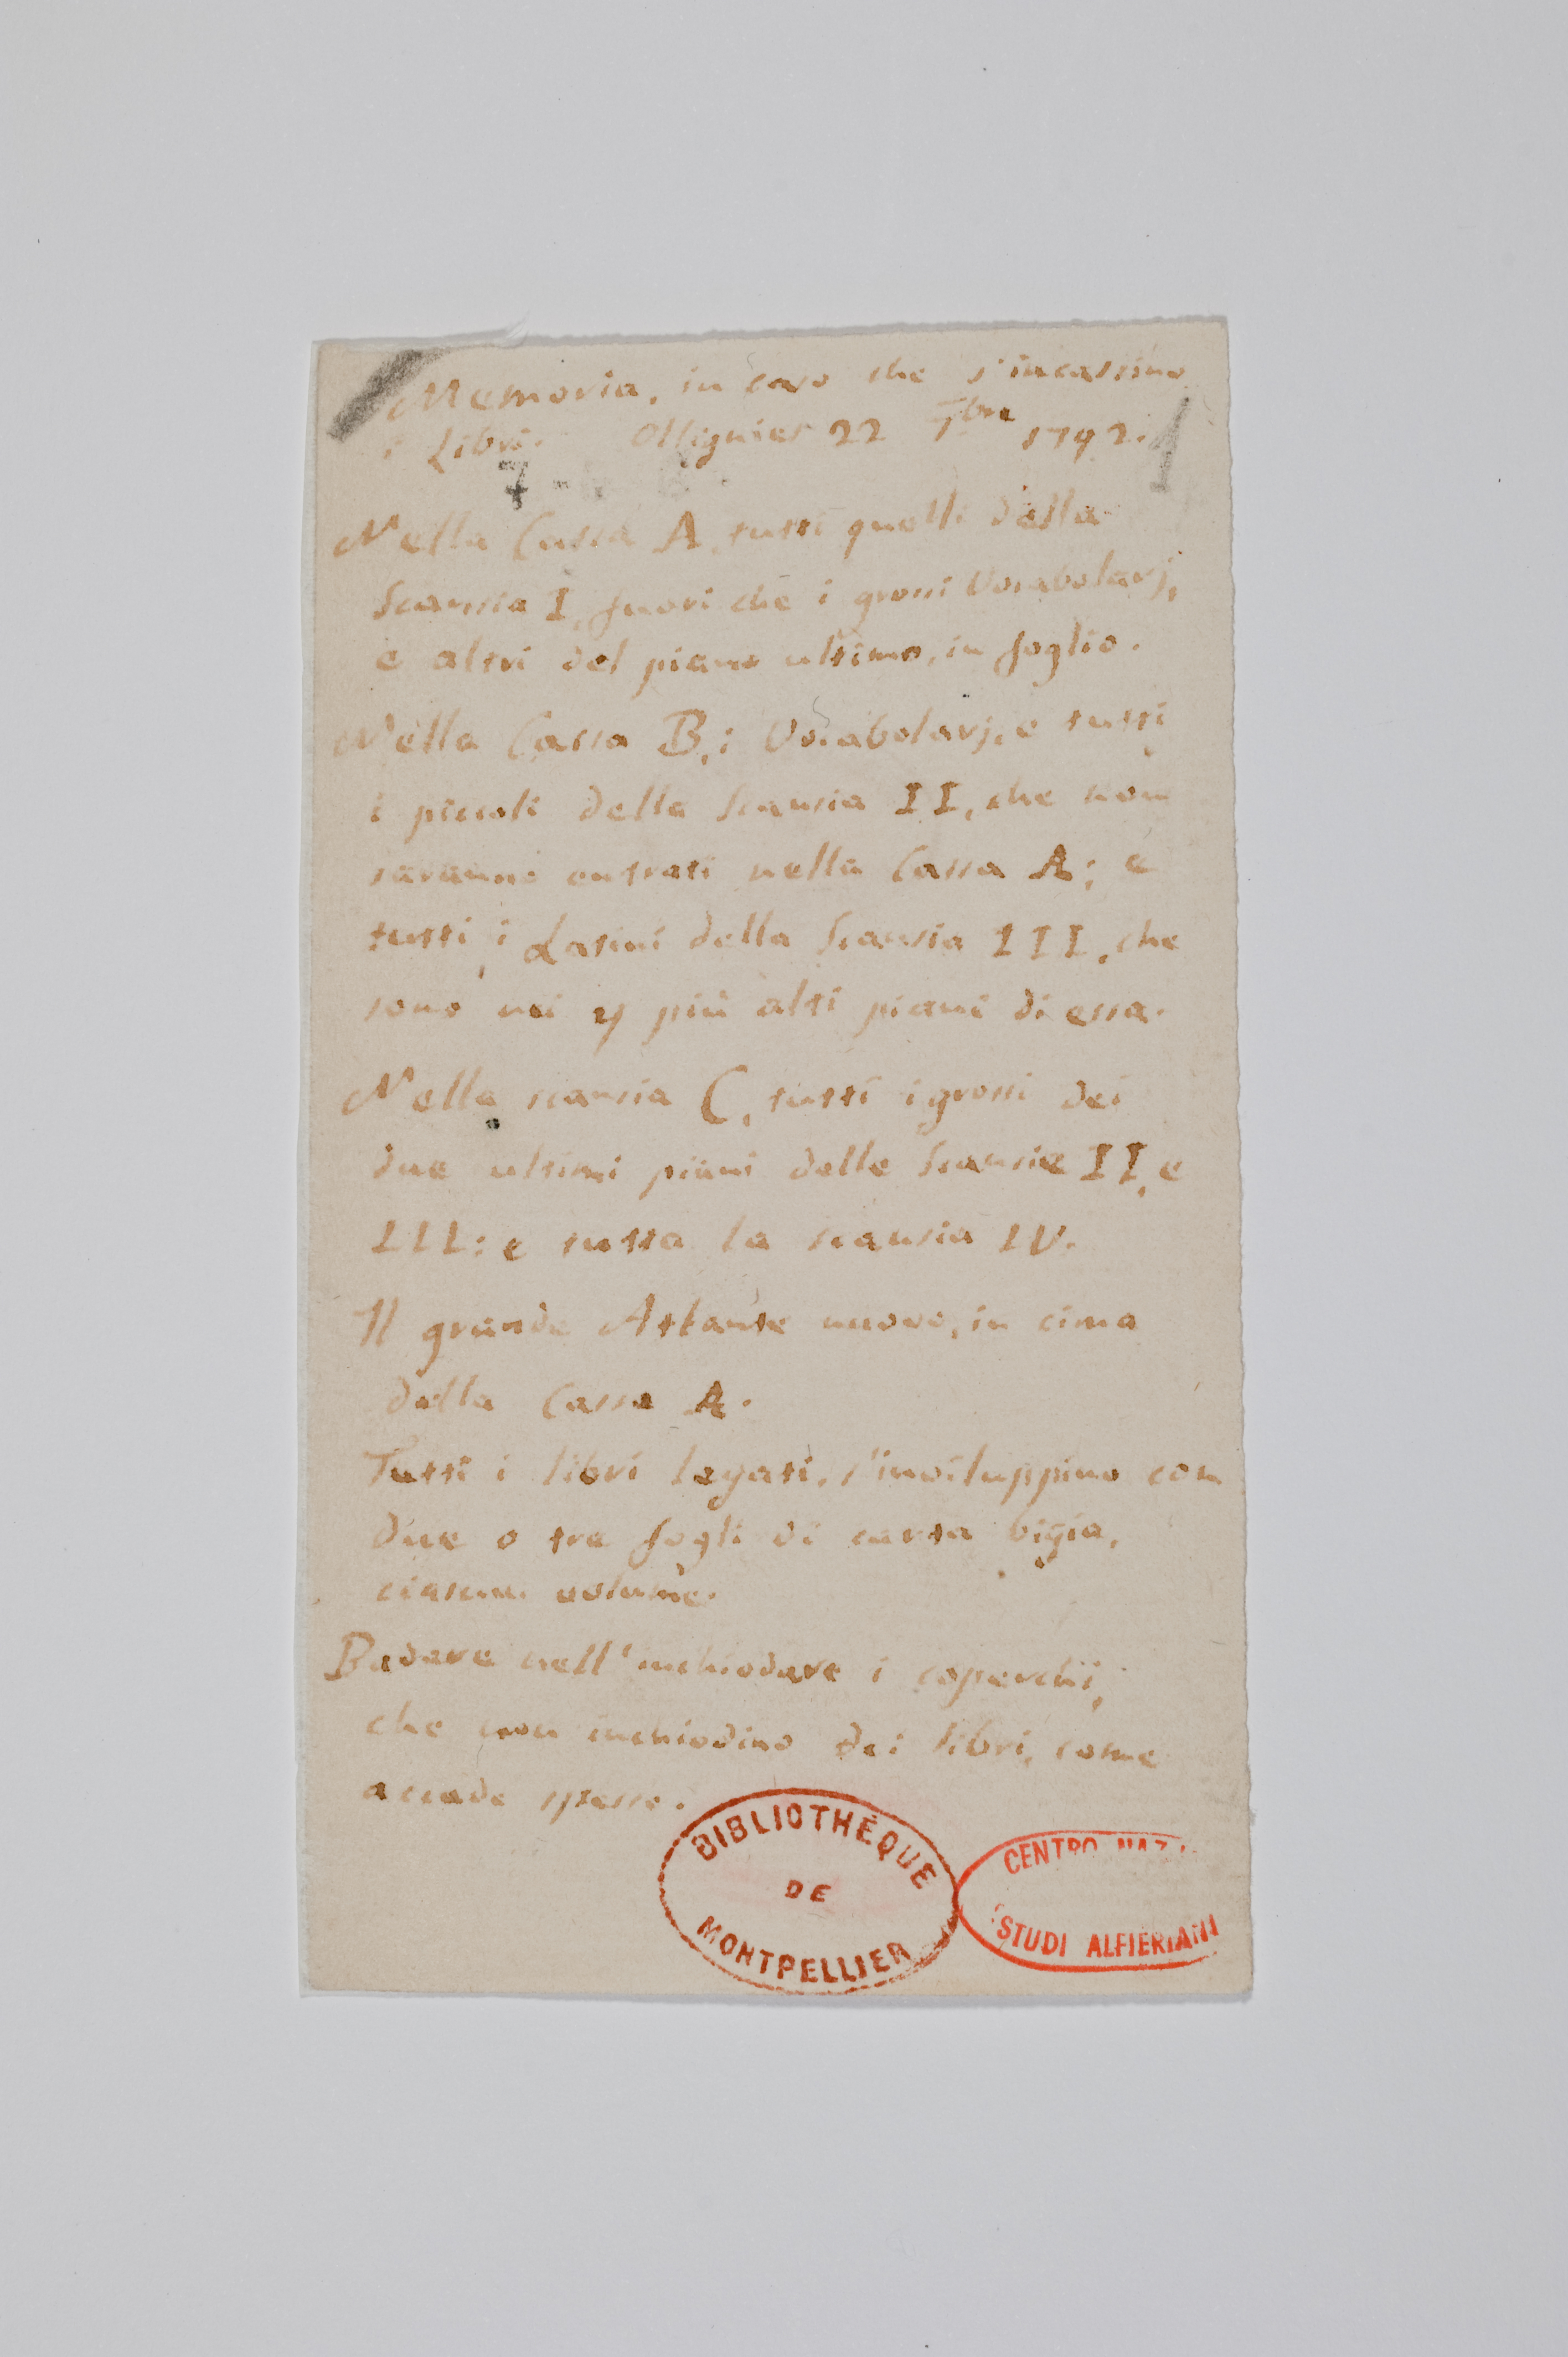 Memoria, in caso che s'incassino
i Libri. Ollignies 22 7bre 1792.
1
7
Nella Cassa A, tutti quelli della
Scansia I, fuori che i grossi Vocabolarj,
e altri del piano ultimo, in foglio.
Nella Cassa B, i Vocabolarj, e tutti
i piccoli della Scansia II, che non
saranno entrati nella Cassa A; e
tutti i Latini della Scansia III, che
sono nei 4 più alti piani di essa.
Nella scansia C, tutti i grossi dei
due ultimi piani delle Scansie II, e
III: e tutta la scansia IV.
Il grande Atlante nuovo, in cima
della Cassa A.
Tutti i libri legati, s'inviluppino con
due o tre fogli di carta bigia,
ciascun volume.
Badare nell'inchiodare i coperchi,
che non inchiodino dei libri, come
accade spesso.
BIBLIOTHÈQUE
DE
MONTPELLIER
CENTRO NAZ.
STUDI ALFIERIANI